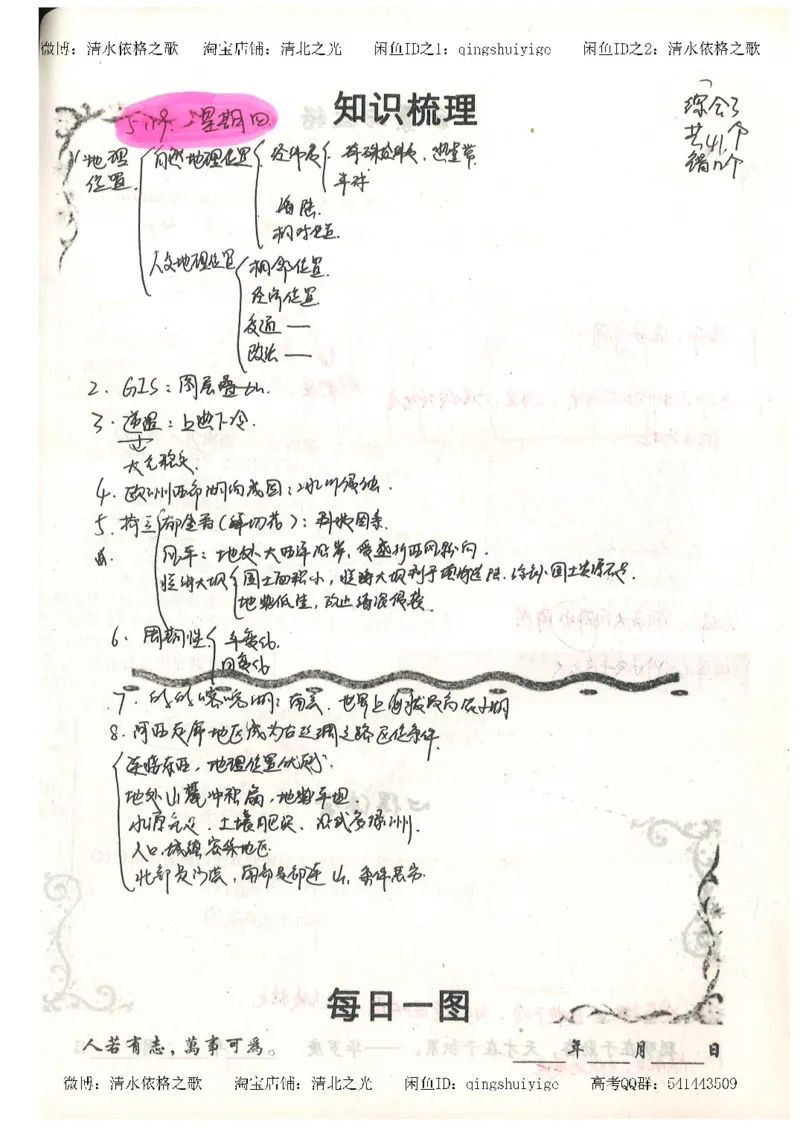 微博：清水依格之歌 淘宝店铺：清北之光 闲鱼ID之1：qingshuiyige 闲鱼ID之2：清水依格之歌
知识梳理
星期四
综合3
共41个
错几个
1.地理位置
自然地理位置
经纬度
特殊经纬度，温度带
半球
海陆
相对位置
人文地理位置
相邻位置
经济位置
交通——
政治——
2. GIS：图层叠加
3. 逆温：上热下冷.
大气稳定.
4. 欧洲西部湖泊成因：冰川侵蚀.
5. 荷兰
郁金香（鲜切花）：科技因素.
风车：地处大西洋沿岸，受盛行西风影响.
拦海大坝
国土面积小，拦海大坝利于围海造陆.
地势低洼，防止海浪侵袭.
6. 周期性
年变化.
日变化
7. 的的喀喀湖：南美.世界上海拔最高淡水湖
8. 河西走廊地区成为古丝绸之路区位条件.
连接东西，地理位置优越.
地处山麓冲积扇，地势平坦.
水源充足.土壤肥沃.形成多绿洲.
人口，城镇密集地区.
北部是沙漠，南部是祁连山，条件恶劣.
每日一图
人若有志，萬事可為。
年 月 日
微博：清水依格之歌 淘宝店铺：清北之光 闲鱼ID：qingshuiyige 高考QQ群：541443509